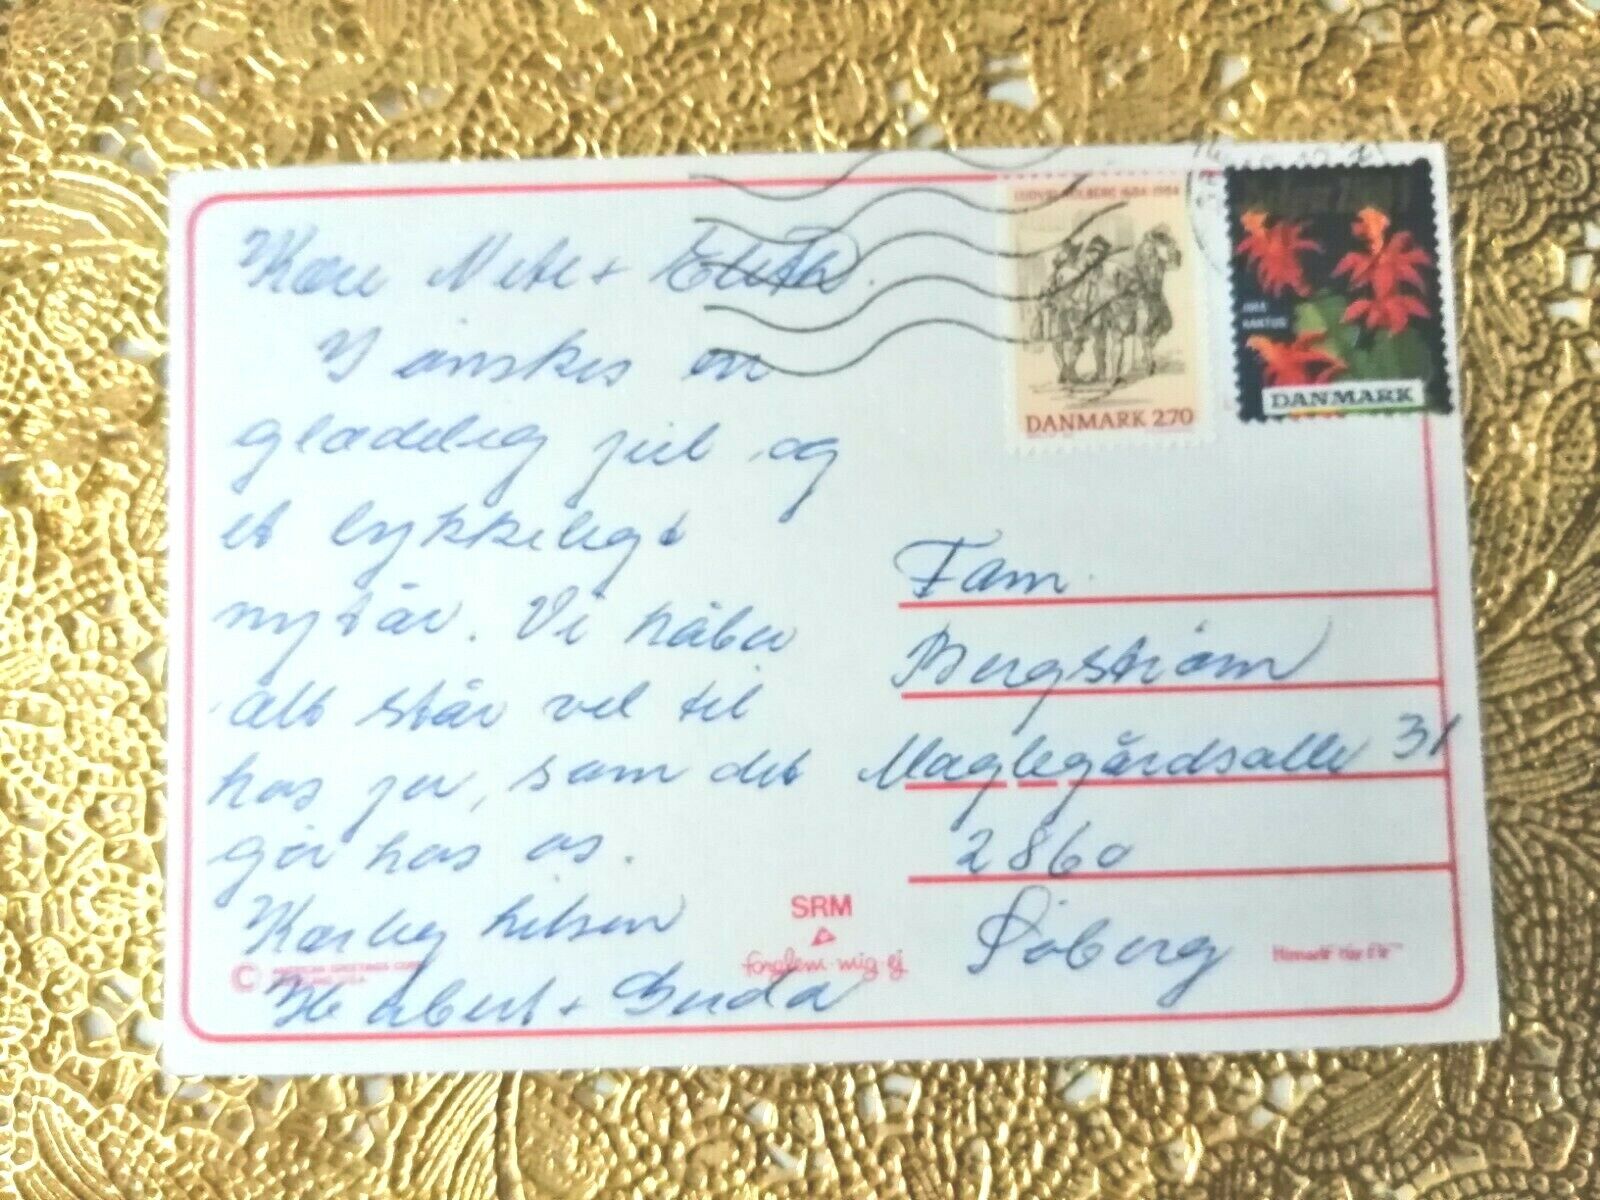 Kære
I ønskes en
glædelig jul og
et lykkeligt
nytår. Vi håber
alt står vel til
hos jer, som det
gør hos os.
Kærlig hilsen
Herbert + Gerda
LUDVIG HOLBERG 1684 1984
DANMARK 2.70
KAKTUS
DANMARK
Fam.
Bergstrøm
Maglegårdsalle 31
2860
Søborg
SRM
forglem-mig-ej
© AMERICAN GREETINGS CORP.